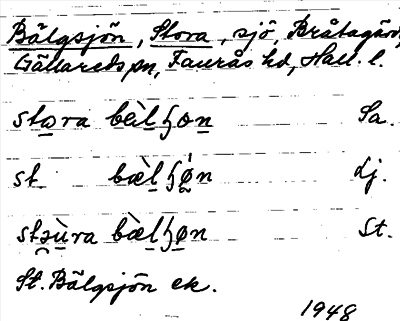 Bälgsjön, Stora, sjö, Bråtagård,
Gällareds sn, Faurås hd, Hall. l.
stora bèlɧon Sa.
st bæ̀lɧǿn Lj.
stəùra bæ̀lɧøn St.
St. Bälgsjön ek.
1948